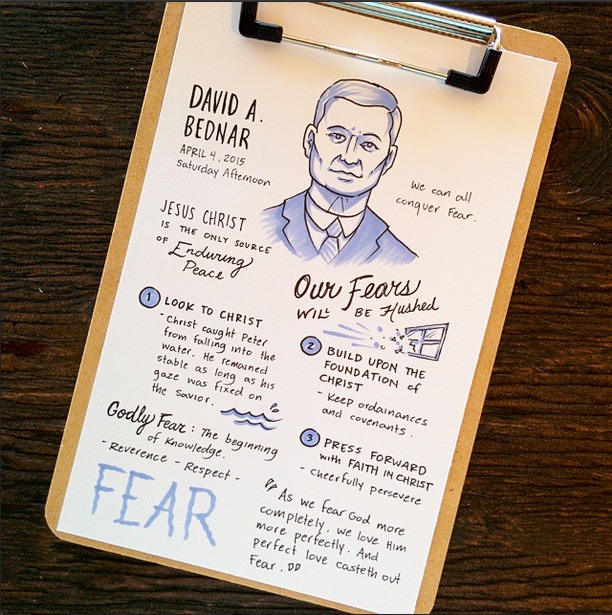 DAVID A.
BEDNAR
APRIL 4, 2015
Saturday Afternoon
We can all
conquer Fear.
JESUS CHRIST
IS THE ONLY SOURCE
OF Enduring
Peace
Our Fears
WILL BE Hushed
1 LOOK TO CHRIST
- Christ caught Peter
from falling into the
water. He remained
stable as long as his
gaze was fixed on
the Savior.
2 BUILD UPON THE
FOUNDATION OF
CHRIST
- Keep ordainances
and covenants.
Godly Fear: The beginning
of Knowledge.
- Reverence - Respect -
FEAR
3 PRESS FORWARD
with FAITH IN CHRIST
- Cheerfully persevere
"As we fear God more
completely, we love Him
more perfectly. And
perfect love casteth out
Fear."